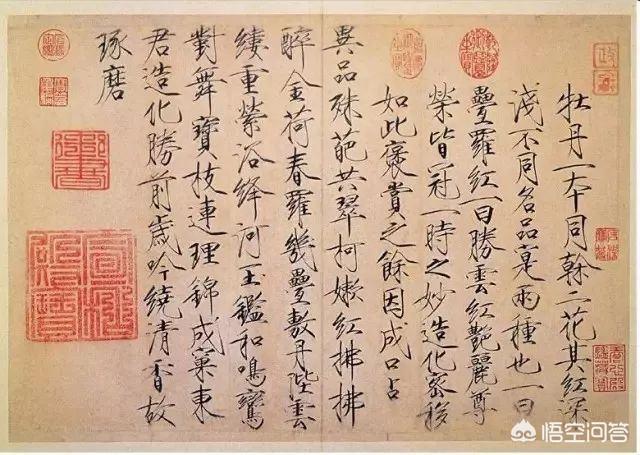 牡丹一本同幹二花其紅深
淺不同名品寔兩種也一曰
疊羅紅一曰勝雲紅艷麗尊
榮皆冠一時之妙造化密移
如此褒賞之餘因成口占
異品殊葩共翠柯嫩紅拂拂
醉金荷春羅幾疊敷丹陛雲
縷重縈浴絳河玉鑑和鳴鸞
對舞寶枝連理錦成窠東
君造化勝前歲吟繞清香故
琢磨
悟空问答